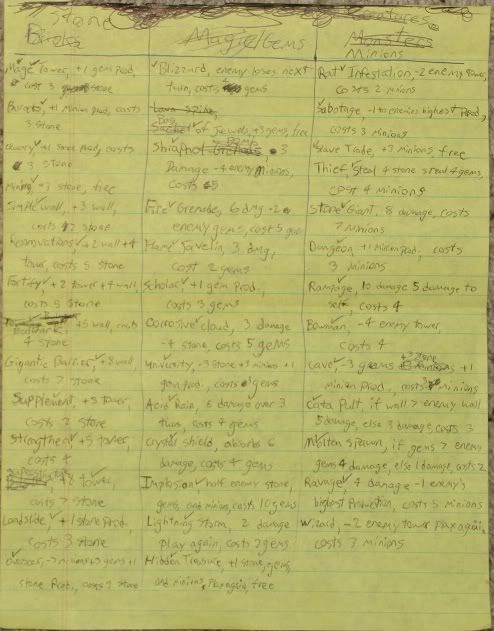 Stone
Magic/Gems
Minions
Mage Tower, +1 gem Prod,
cost 3 stone
Barracks, +1 Minion prod, costs
3 stone
Quarry, +1 stone prod, costs
3 stone
Mining, +3 stone, free
Simple wall, +3 wall,
costs 2 stone
Renovations, +2 wall +4
tower, costs 5 stone
Fortify, +2 tower +4 wall,
costs 5 stone
+5 wall, costs
4 stone
Gigantic Barrier, +8 wall,
costs 7 stone
Supplement, +3 tower,
costs 2 stone
Strengthen, +5 tower,
costs 4
+8 tower,
costs 7 stone
Landslide, +1 stone Prod.
costs 3 stone
Overseer, -2 minions +3 gems +1
stone Prod., costs 3 stone
Blizzard, enemy loses next
turn, costs gems
of Jewels, +3 gems, free
Shrapnel 3
Damage -4 enemy minions,
costs 5
Fire Grenade, 6 dmg -2
enemy gems, costs 5 gems
Flame Javelin 3 dmg,
cost 2 gems
Scholar, +1 gem Prod,
costs 3 gems
Corrosive cloud, 3 damage
-4 stone, costs 5 gems
University, -3 stone +3 minions +1
gem prod, costs gems
Acid Rain, 6 damage over 3
turns, costs 4 gems
Crystal shield, absorbs 6
damage, costs 4 gems
Implosion, half enemy stone,
gems, and minions, costs 10 gems
Lightning Storm, 2 damage
play again, costs 2 gems
Hidden Treasure, +1 stone, gems,
and minions, Play again, free
Rat Infestation, -2 enemy tower,
costs 2 minions
Sabotage, -1 to enemies highest Prod,
costs 3 Minions
Slave Trade, +3 minions free
Thief, steal 4 stone steal 4 gems,
cost 4 Minions
Stone Giant, 8 damage, costs
7 Minions
Dungeon +1 Minion Prod, costs
3 minions
Rampage, 10 damage 5 damage to
self, costs 4
Bowman, -4 enemy tower,
costs 4
Cave, -3 gems +3 stone +1
minion prod, costs minions
Catapult, if wall > enemy wall
5 damage, else 3 damage, costs 3
Molten Spawn, if gems > enemy
gems 4 damage, else 1 damage, costs 2
Ravage, 4 damage -1 enemy's
highest Production, costs 5 Minions
Wizard, -2 enemy tower Play again,
costs 3 minions